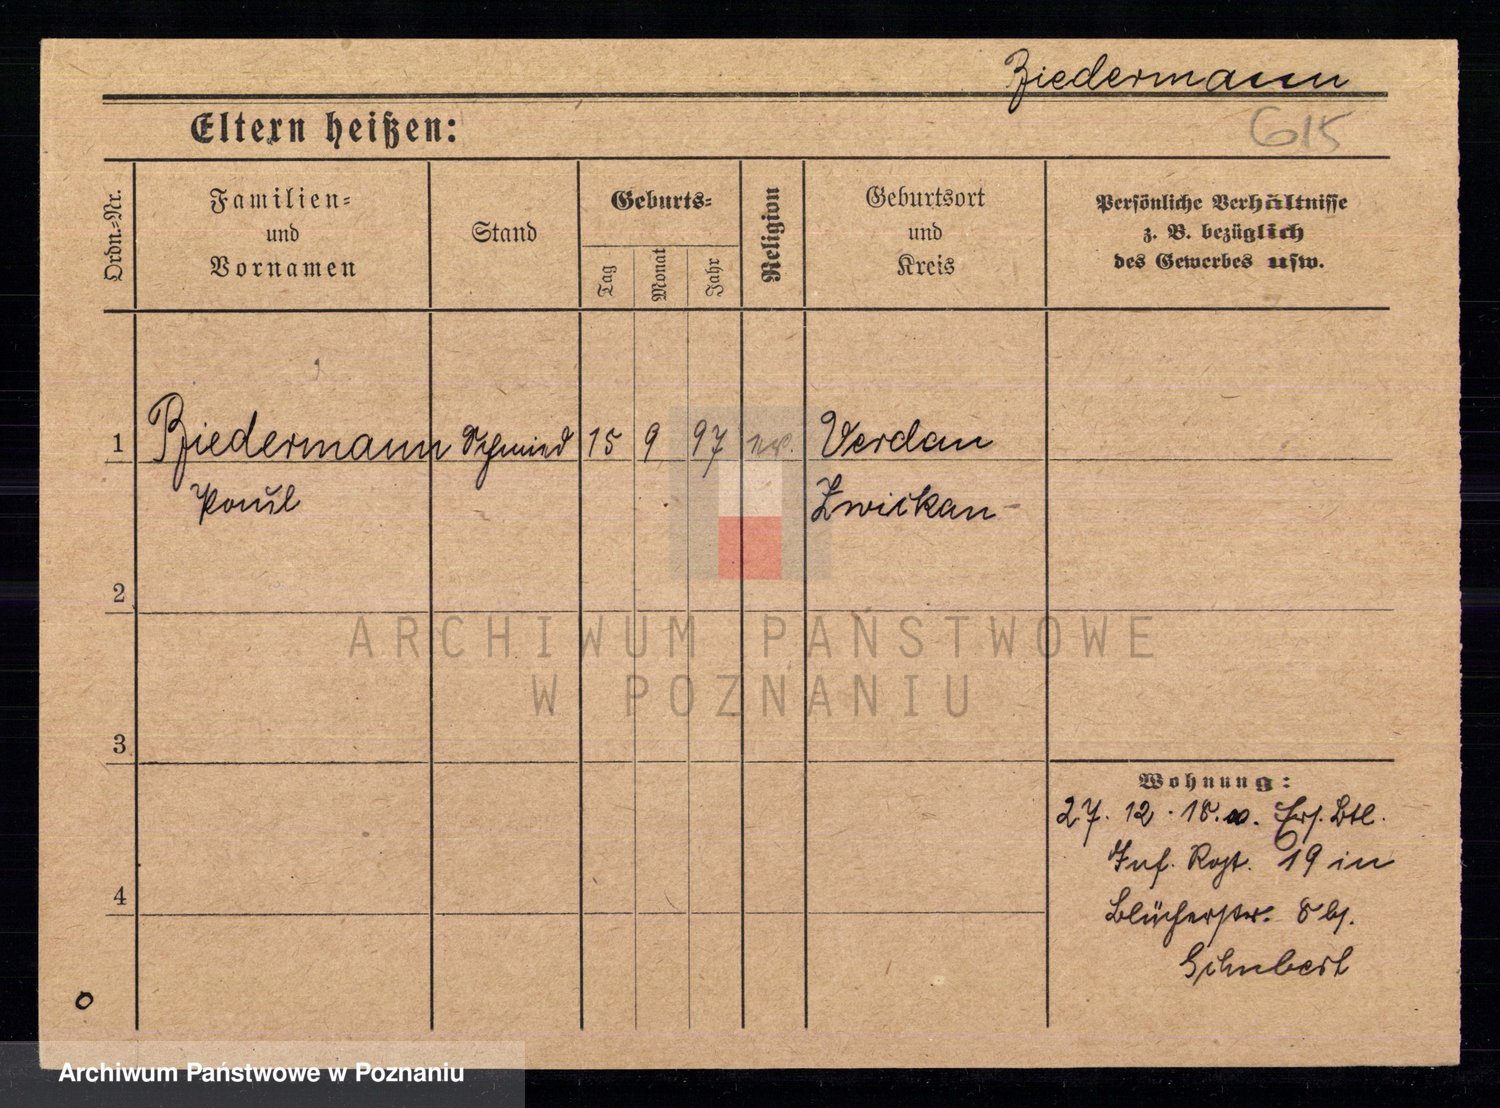 Biedermann
Eltern heißen:
G15
Ordn.-Nr.
Familien-
und
Vornamen
Stand
Geburts-
Tag
Monat
Jahr
Religion
Geburtsort
und
Kreis
Persönliche Verhältnisse
z. B. bezüglich
des Gewerbes usw.
1 Biedermann Schmied 15 9 97 ev. Verdau
Paul Zwickau
2
3
4
Wohnung:
27. 12. 18. Ers. Btl.
Inf. Rgt. 19 in
Blücherstr. 8 bs.
Schubert
ARCHIWUM PAŃSTWOWE
W POZNANIU
Archiwum Państwowe w Poznaniu